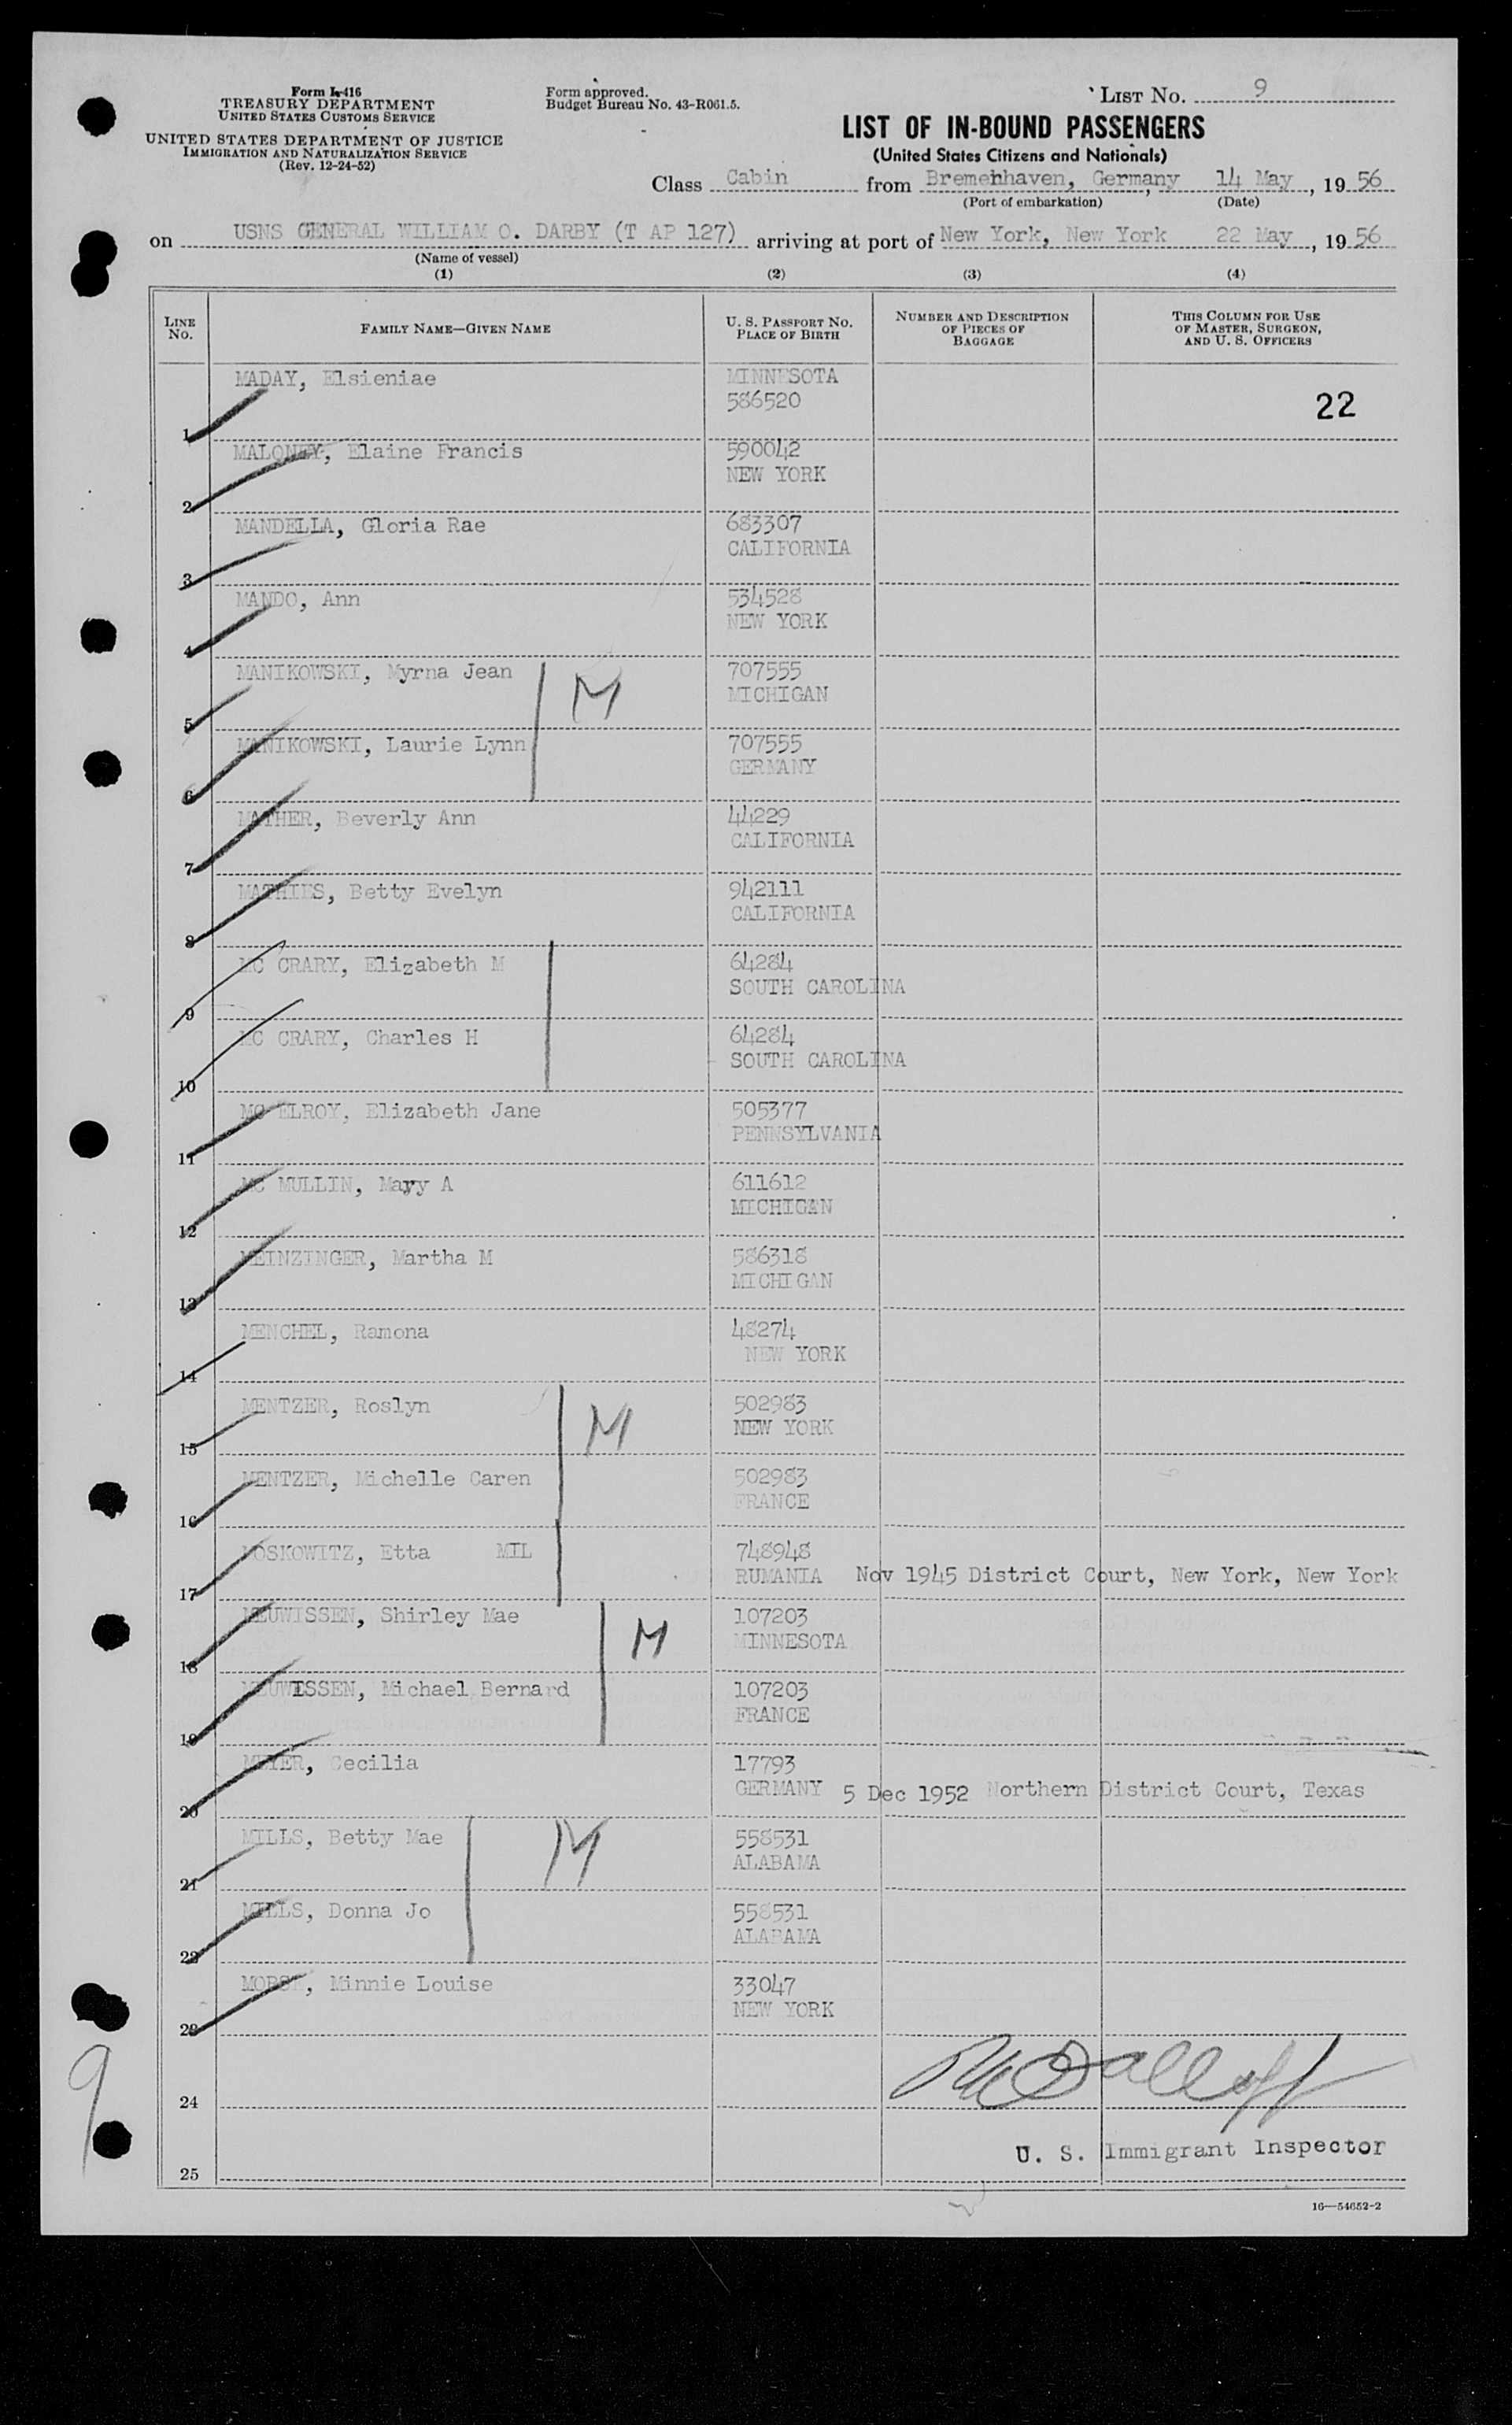 Form I-416
TREASURY DEPARTMENT
UNITED STATES CUSTOMS SERVICE
UNITED STATES DEPARTMENT OF JUSTICE
IMMIGRATION AND NATURALIZATION SERVICE
(Rev. 12-24-52)
Form approved.
Budget Bureau No. 43-R061.5.
LIST NO. 9
LIST OF IN-BOUND PASSENGERS
(United States Citizens and Nationals)
Class Cabin from Bremerhaven, Germany, 14 May, 19 56
(Port of embarkation) (Date)
on USNS GENERAL WILLIAM O. DARBY (T AP 127) arriving at port of New York, New York 22 May, 19 56
(Name of vessel)
(1) (2) (3) (4)
LINE NO.
FAMILY NAME—GIVEN NAME
U. S. PASSPORT NO.
PLACE OF BIRTH
NUMBER AND DESCRIPTION
OF PIECES OF
BAGGAGE
THIS COLUMN FOR USE
OF MASTER, SURGEON,
AND U. S. OFFICERS
MADAY, Elsieniae MINNESOTA
586520 22
1
MALONEY, Elaine Francis 590042
NEW YORK
2
MANDELLA, Gloria Rae 683307
CALIFORNIA
3
MANDO, Ann 534528
NEW YORK
4
MANIKOWSKI, Myrna Jean M 707555
MICHIGAN
5
MANIKOWSKI, Laurie Lynn 707555
GERMANY
6
MATHER, Beverly Ann 44229
CALIFORNIA
7
MATHIES, Betty Evelyn 942111
CALIFORNIA
8
MC CRARY, Elizabeth M 64284
SOUTH CAROLINA
9
MC CRARY, Charles H 64284
SOUTH CAROLINA
10
MC ELROY, Elizabeth Jane 505377
PENNSYLVANIA
11
MC MULLIN, Mary A 611612
MICHIGAN
12
MEINZINGER, Martha M 586318
MICHIGAN
13
MENCHEL, Ramona 48274
NEW YORK
14
MENTZER, Roslyn M 502983
NEW YORK
15
MENTZER, Michelle Caren 502983
FRANCE
16
MOSKOWITZ, Etta MIL 748948
RUMANIA Nov 1945 District Court, New York, New York
17
MEUWISSEN, Shirley Mae M 107203
MINNESOTA
18
MEUWISSEN, Michael Bernard 107203
FRANCE
19
MEYER, Cecilia 17793
GERMANY 5 Dec 1952 Northern District Court, Texas
20
MILLS, Betty Mae M 558531
ALABAMA
21
MILLS, Donna Jo 558531
ALABAMA
22
Minnie Louise 33047
NEW YORK
23
24
U. S. Immigrant Inspector
25
9
16—54652-2